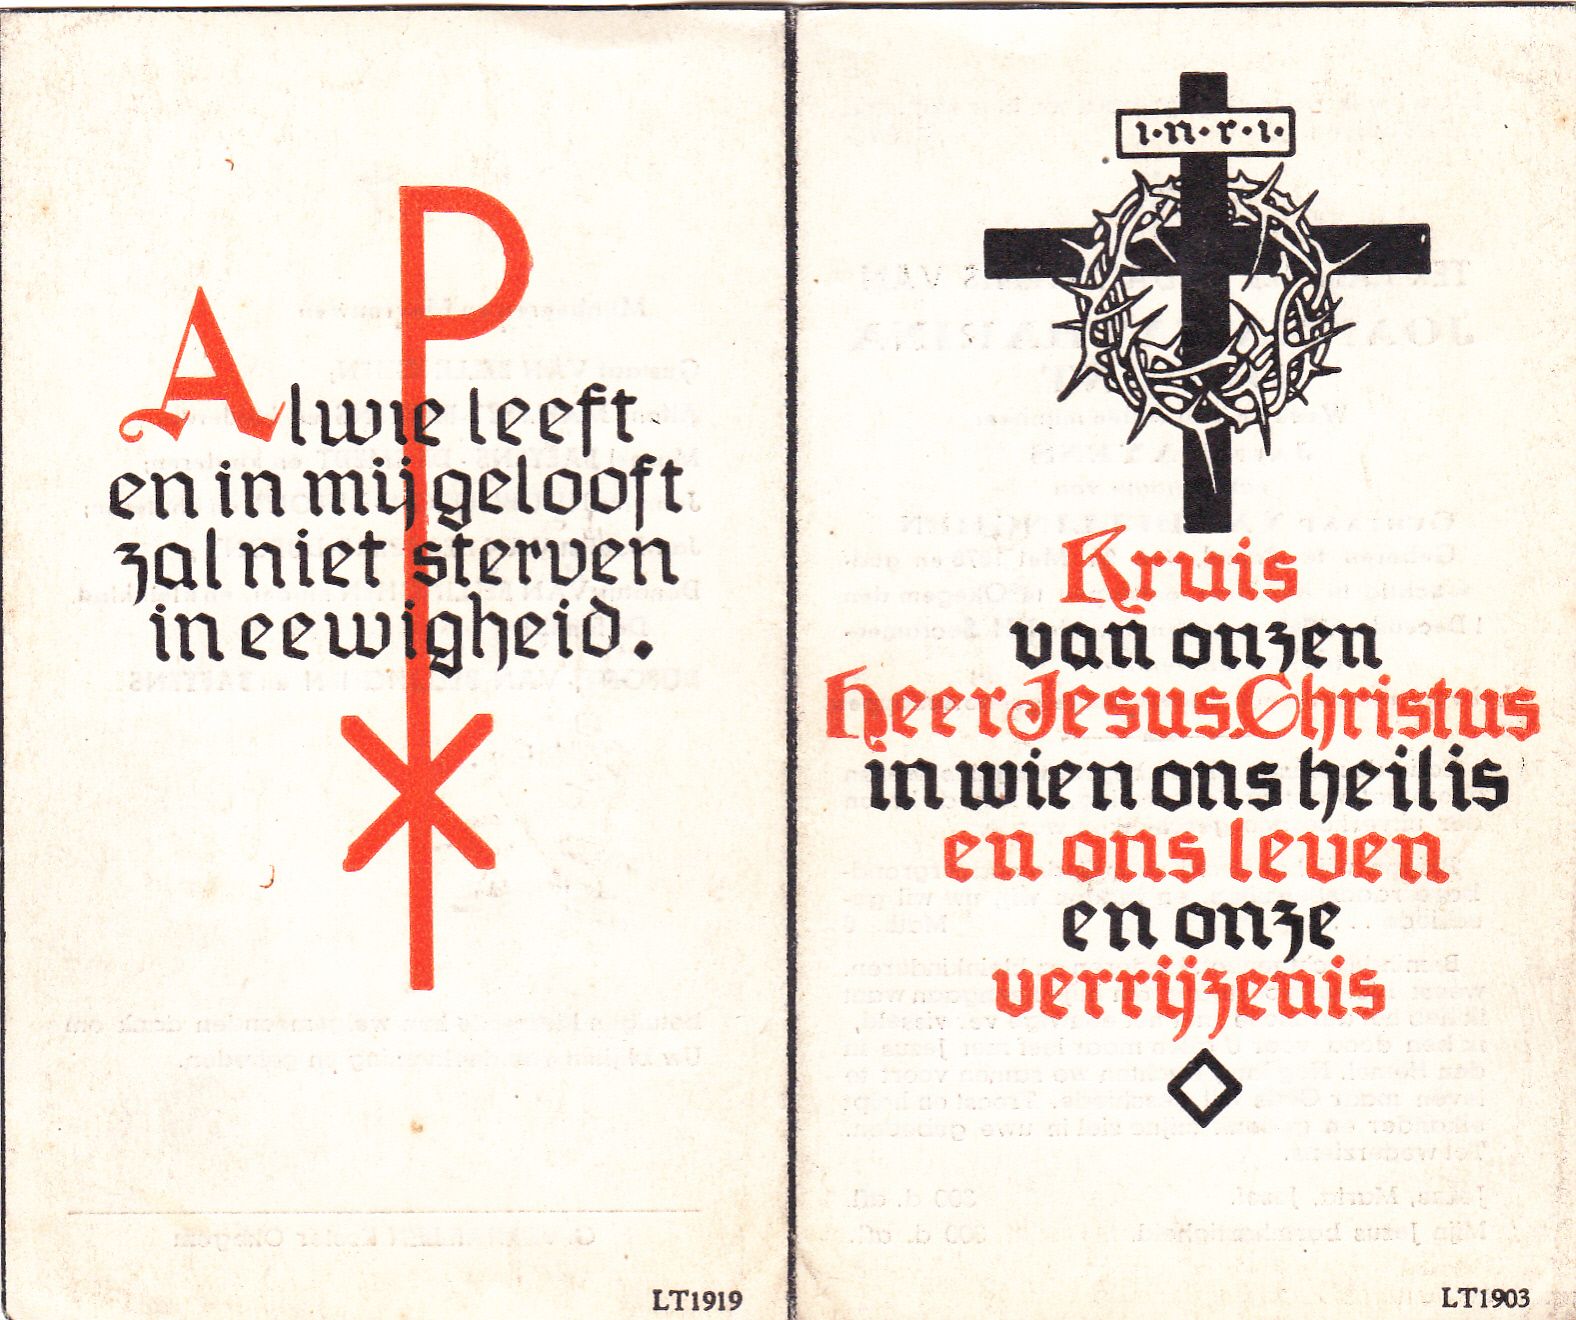 Alwie leeft
en in mij gelooft
zal niet sterven
in eewigheid.
LT1919
i.n.r.i.
Kruis
van onzen
Heer Jesus Christus
in wien ons heil is
en ons leven
en onze
verrijzenis
LT1903